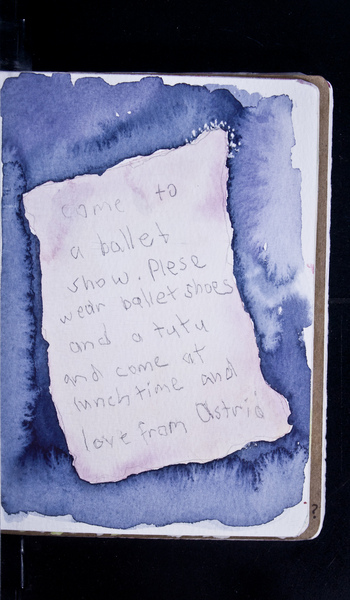 come to
a ballet
show. Plese
wear ballet shoes
and a tutu
and come at
lunch time and
love from Astrid
?